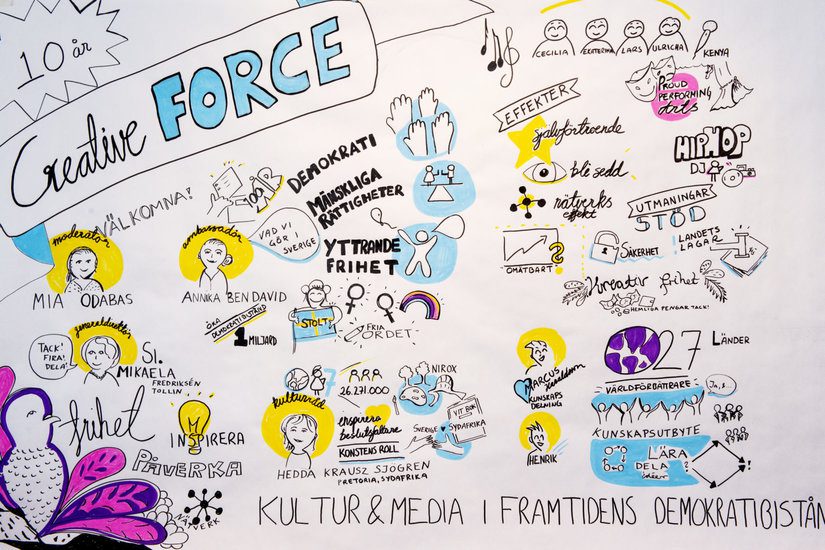 10 år
Creative FORCE
VÄLKOMNA!
moderator
MIA ODABAS
ambassadör
ANNIKA BEN DAVID
VAD VI
GÖR I
SVERIGE
DEMOKRATI
MÄNSKLIGA
RÄTTIGHETER
YTTRANDE
FRIHET
ÖKA
1 MILJARD
STOLT!
FRIA
ORDET
generaldirektör
TACK!
FIRA!
DELA!
SI.
MIKAELA
FREDRIKSÉN
TOLLIN
frihet
INSPIRERA
PÅVERKA
NÄTVERK
kulturråd
HEDDA KRAUSZ SJÖGREN
PRETORIA, SYDAFRIKA
7
26.271.000
inspirera
beslutsfattare
KONSTENS ROLL
NIROX
VIT BOK
SVERIGE
SYDAFRIKA
CECILIA
EKATERINA
LARS
ULRICHA
KENYA
EFFEKTER
självförtroende
bli sedd
nätverks
effekt
OMÄTBART
?
PROUD
PERFORMING
Arts
HIPHOP
DJ
UTMANINGAR
STÖD
SÄKERHET
LANDETS
LAGAR
Kreativ frihet
HEMLIGA PENGAR TACK!
MARCUS
KUNSKAPS
DELNING
HENRIK
27 LÄNDER
VÄRLDFÖRBÄTTRARE
KUNSKAPSUTBYTE
LÄRA
DELA
idéer
KULTUR & MEDIA I FRAMTIDENS DEMOKRATIBISTÅN